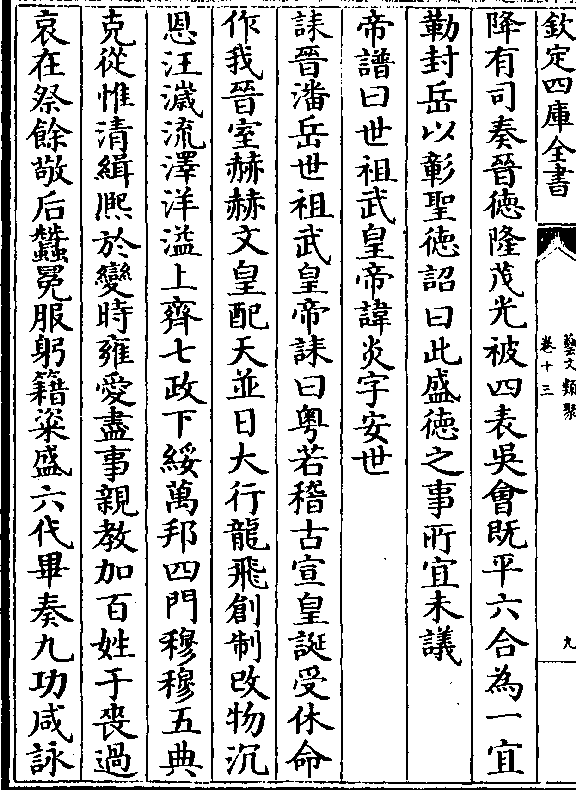 欽定四庫全書
藝文類聚
卷十三
九
降有司奏晉徳隆茂光被四表吳會既平六合為一宜
勒封岳以彰聖徳詔曰此盛徳之事所宜未議
帝譜曰世祖武皇帝諱炎字安世
誄晉潘岳世祖武皇帝誄曰粤若稽古宣皇誕受休命
作我晉室赫赫文皇配天並日大行龍飛創制改物沉
恩汪濊流澤洋溢上齊七政下綏萬邦四門穆穆五典
克從惟清緝熈於變時雍愛盡事親教加百姓于喪過
哀在祭餘敬后蠶冕服躬籍粢盛六代畢奏九功咸詠